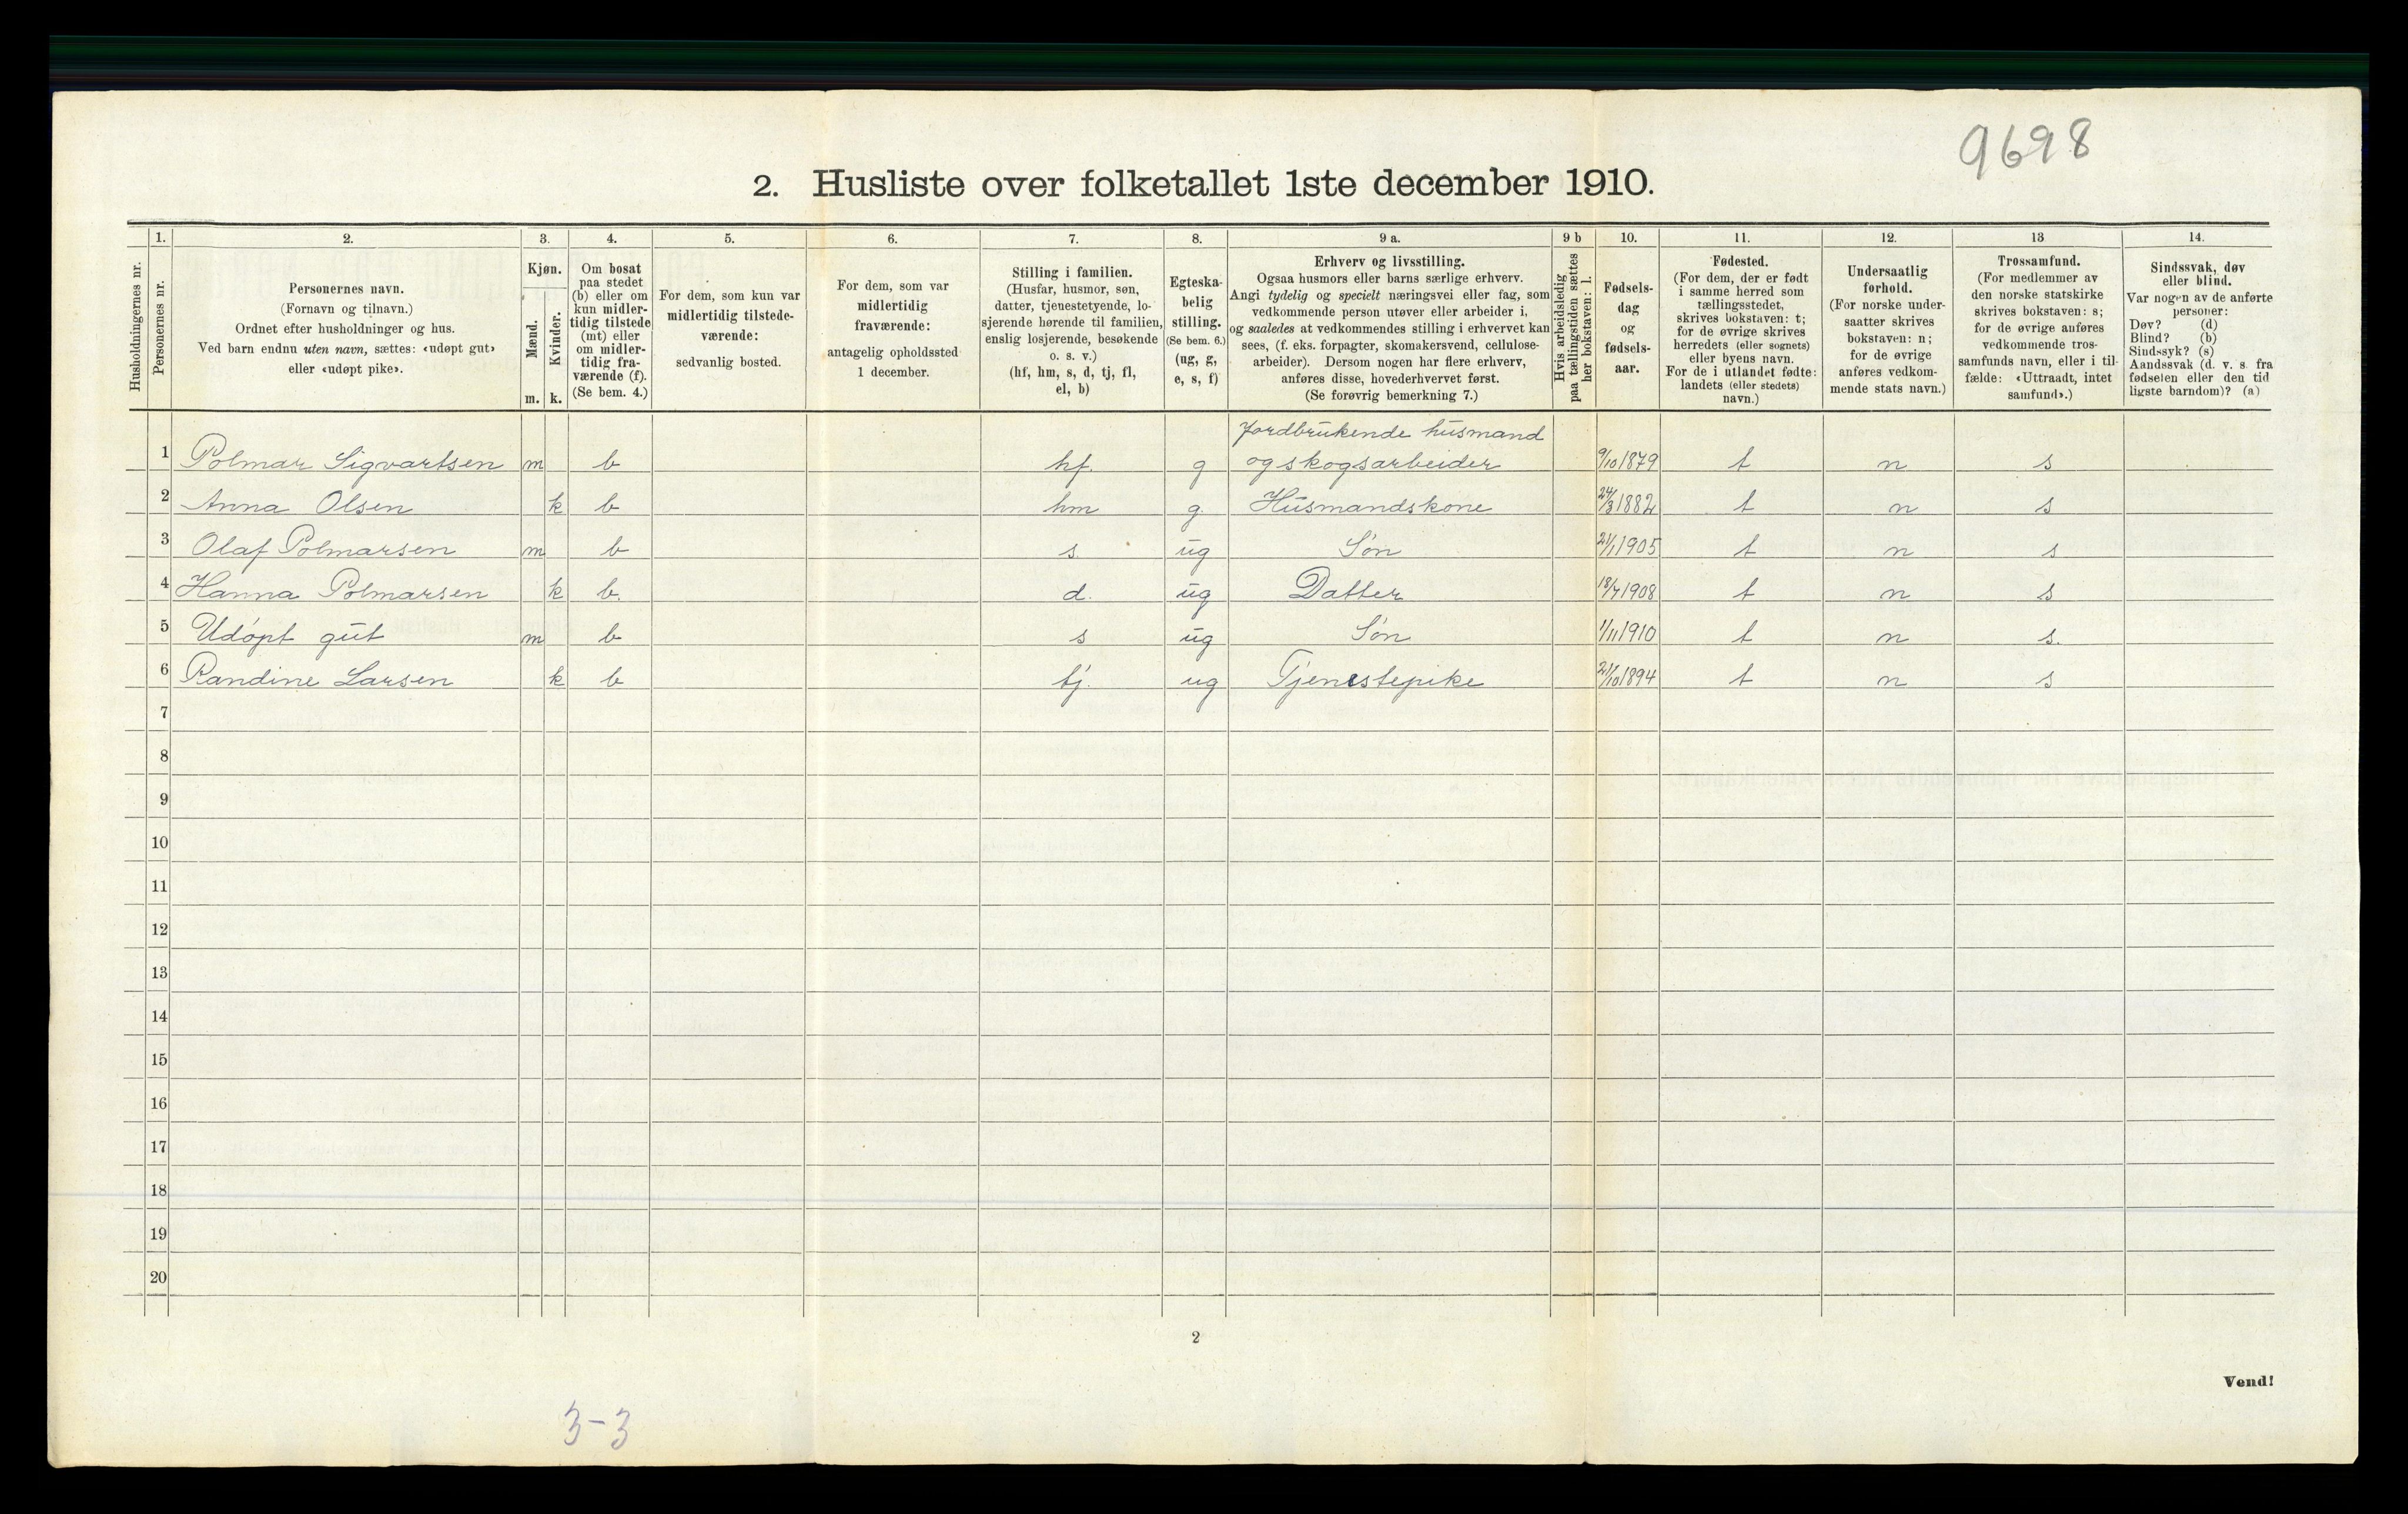 9698
2. Husliste over folketallet 1ste december 1910.
1. 2. 3. 4. 5. 6. 7. 8. 9 a. 9 b 10. 11. 12. 13 14.
Husholdningernes nr.
Personernes nr.
Personernes navn.
(Fornavn og tilnavn.)
Ordnet efter husholdninger og hus.
Ved barn endnu uten navn, sættes: «udøpt gut»
eller «udøpt pike».
Kjøn.
Mænd.
Kvinder.
m. k.
Om bosat
paa stedet
(b) eller om
kun midler-
tidig tilstede
(mt) eller
om midler-
tidig fra-
værende (f).
(Se bem. 4.)
For dem, som kun var
midlertidig tilstede-
værende:
sedvanlig bosted.
For dem, som var
midlertidig
fraværende:
antagelig opholdssted
1 december.
Stilling i familien.
(Husfar, husmor, søn,
datter, tjenestetyende, lo-
sjerende hørende til familien,
enslig losjerende, besøkende
o. s. v.)
(hf, hm, s, d, tj, fl,
el, b)
Egteska-
belig
stilling.
(Se bem. 6.)
(ug, g,
e, s, f)
Erhverv og livsstilling.
Ogsaa husmors eller barns særlige erhverv.
Angi tydelig og specielt næringsvei eller fag, som
vedkommende person utøver eller arbeider i,
og saaledes at vedkommendes stilling i erhvervet kan
sees, (f. eks. forpagter, skomakersvend, cellulose-
arbeider). Dersom nogen har flere erhverv,
anføres disse, hovederhvervet først.
(Se forøvrig bemerkning 7.)
Hvis arbeidsledig
paa tællingstiden sættes
her bokstaven: l.
Fødsels-
dag
og
fødsels-
aar.
Fødested.
(For dem, der er født
i samme herred som
tællingsstedet,
skrives bokstaven: t;
for de øvrige skrives
herredets (eller sognets)
eller byens navn.
For de i utlandet fødte:
landets (eller stedets)
navn.)
Undersaatlig
forhold.
(For norske under-
saatter skrives
bokstaven: n;
for de øvrige
anføres vedkom-
mende stats navn.)
Trossamfund.
(For medlemmer av
den norske statskirke
skrives bokstaven: s;
for de øvrige anføres
vedkommende tros-
samfunds navn, eller i til-
fælde: «Uttraadt, intet
samfund».)
Sindssvak, døv
eller blind.
Var nogen av de anførte
personer:
Døv? (d)
Blind? (b)
Sindssyk? (s)
Aandssvak (d. v. s. fra
fødselen eller den tid
ligste barndom)? (a)
Jordbrukende husmand
1 Polmar Sigvartsen m b hf. g og skogsarbeider 9/10 1879 t n s
2 Anna Olsen k b hm g. Husmandskone 24/3 1882 t n s
3 Olaf Polmarsen m b s. ug Søn 21/1 1905 t n s
4 Hanna Polmarsen k b. d. ug Datter 18/7 1908 t n s
5 Udøpt gut m b s ug Søn 1/11 1910 t n s.
6 Randine Larsen k b tj. ug Tjenestepike 21/10 1894 t n s
7
8
9
10
11
12
13
14
15
16
17
18
19
20
2
Vend!
3-3